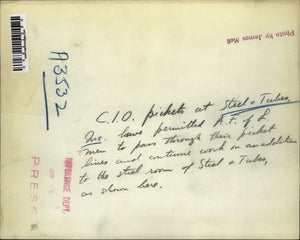 Photo by James Meli
A3532
C.I.O. pickets at Steel & Tubes,
Inc. have permitted A.F. of L.
men to pass through their picket
lines and continue work on an addition
to the steel room of Steel & Tubes,
as shown here.
PRESS
REFERENCE DEPT.